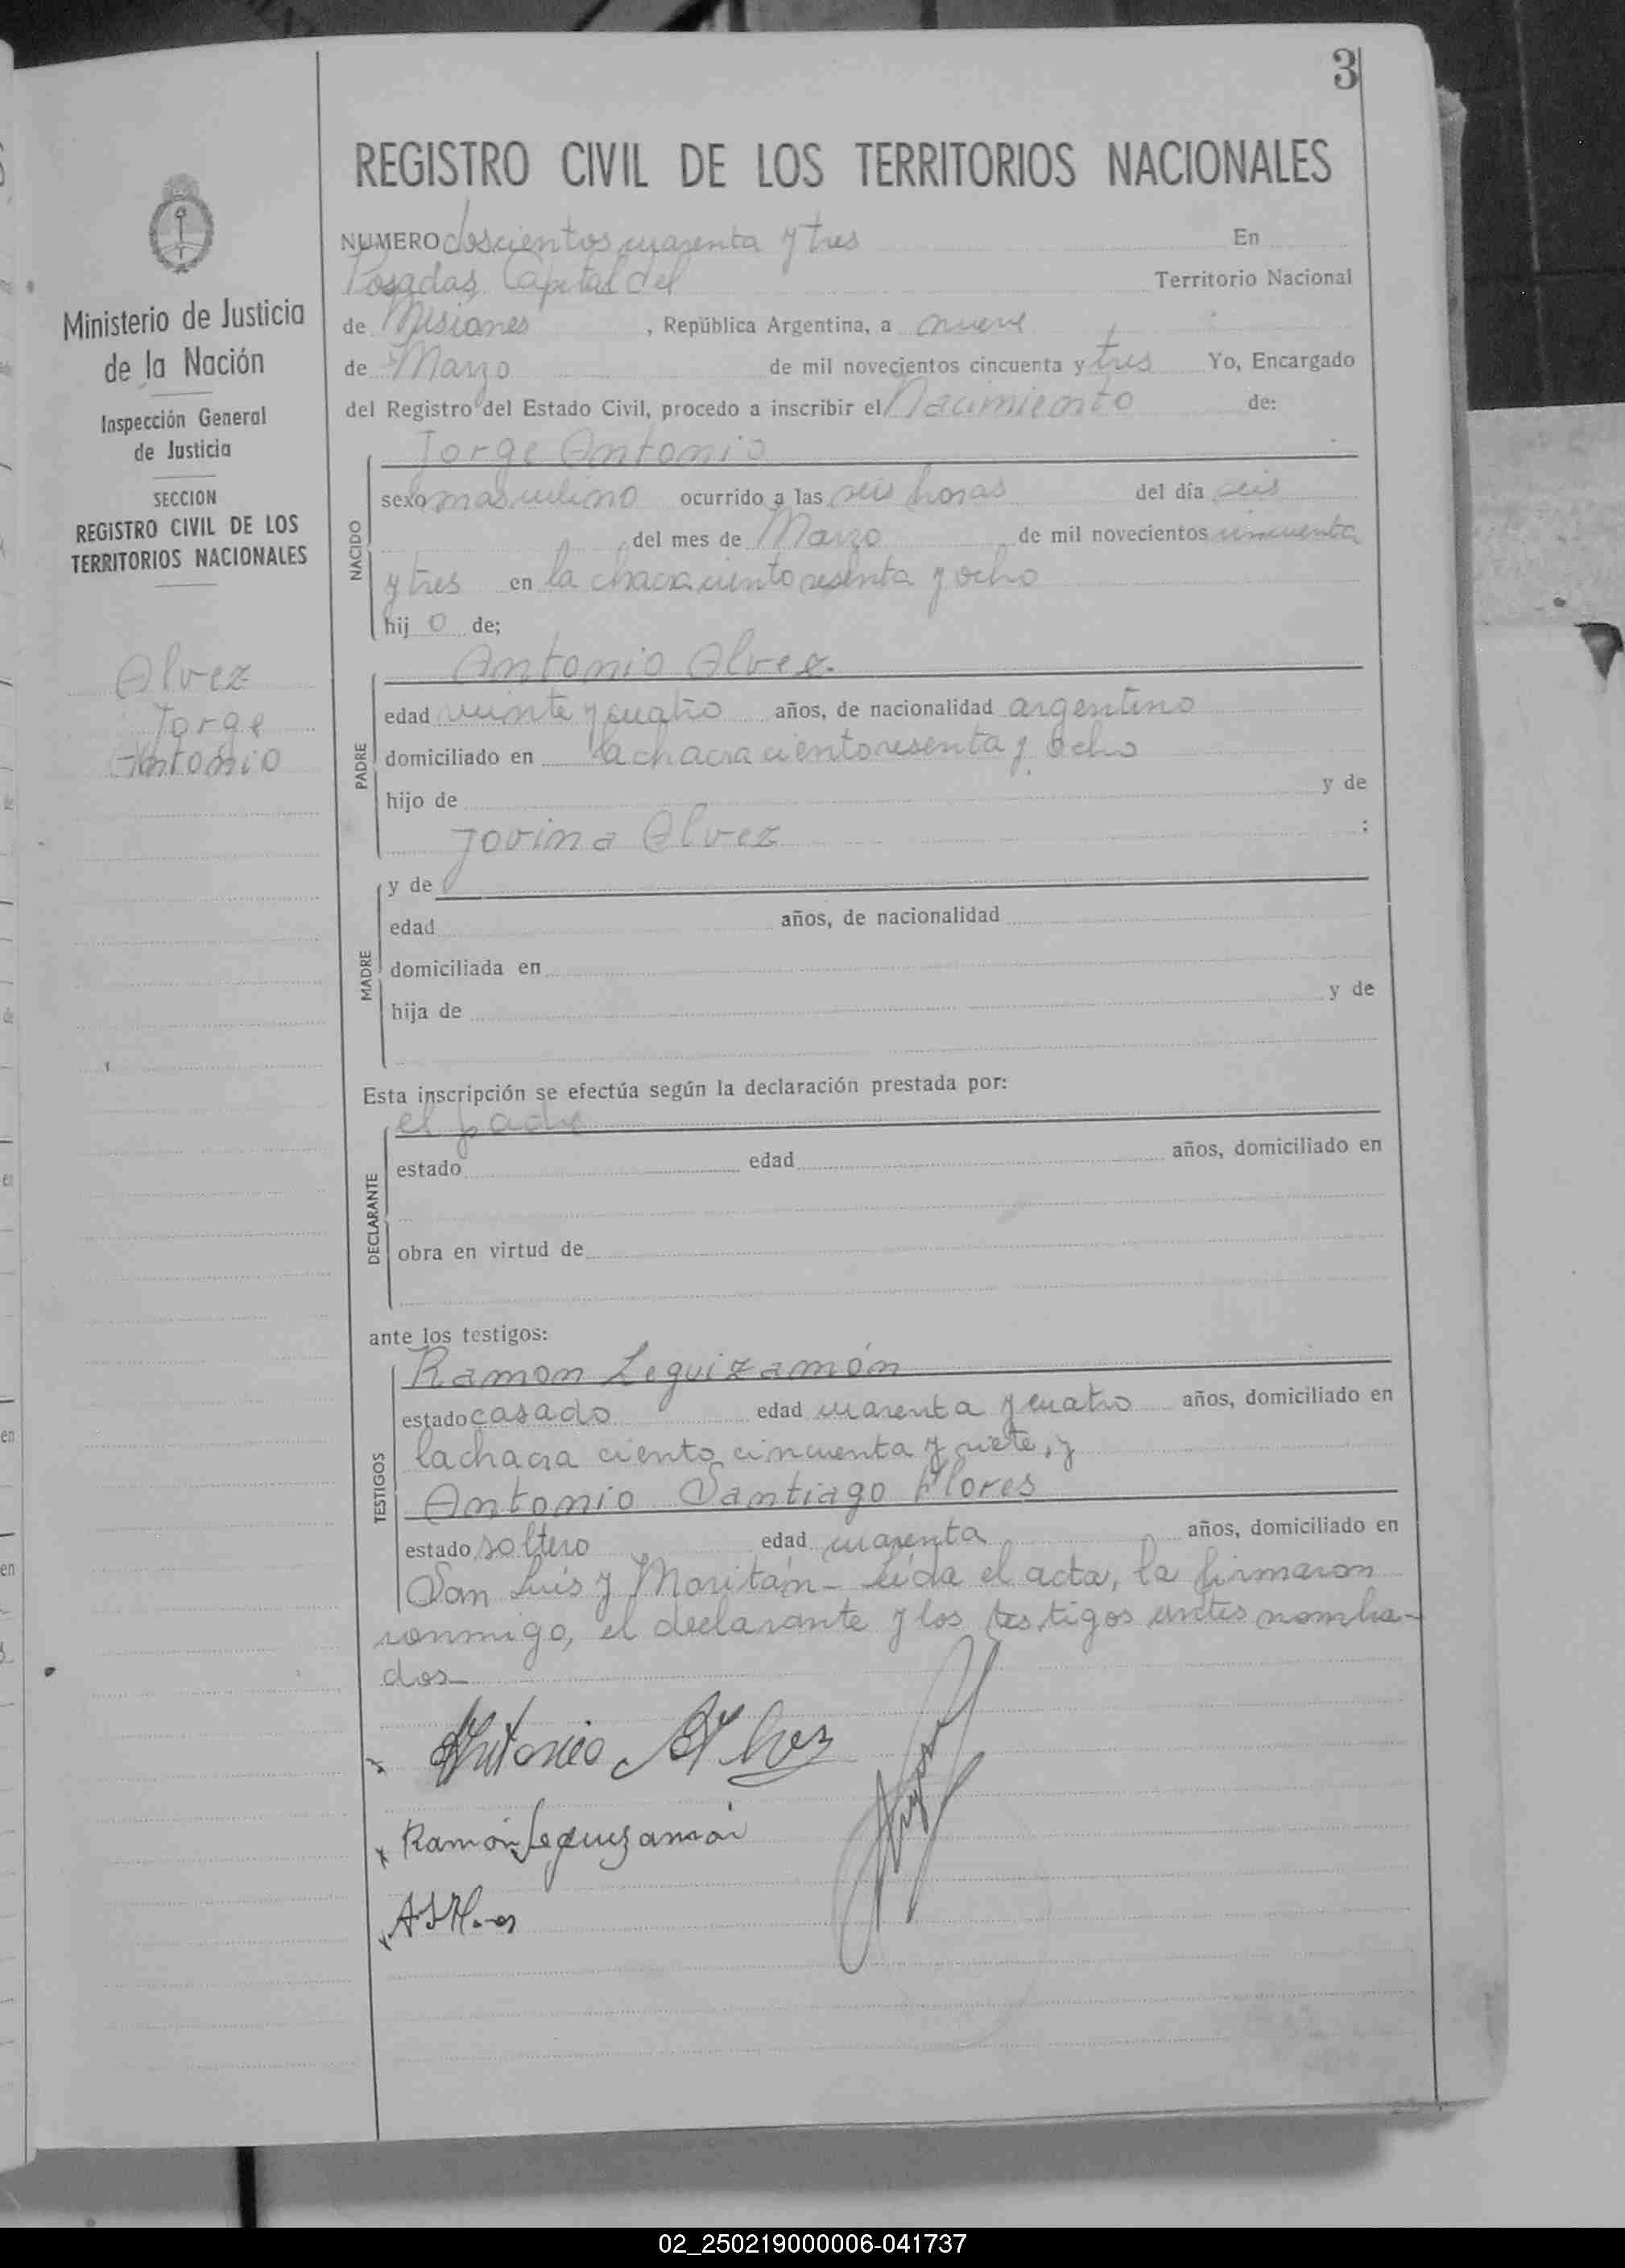 3
REGISTRO CIVIL DE LOS TERRITORIOS NACIONALES
NUMERO doscientos cuarenta y tres En
Posadas, Capital del Territorio Nacional
de Misiones, República Argentina, a nueve
de Marzo de mil novecientos cincuenta y tres Yo, Encargado
del Registro del Estado Civil, procedo a inscribir el Nacimiento de:
Jorge Antonio
sexo masculino ocurrido a las seis horas del día seis
del mes de Marzo de mil novecientos cincuenta
y tres en la chacra ciento sesenta y ocho
hijo de;
NACIDO
Antonio Alvez.
edad veinte y cuatro años, de nacionalidad argentino
domiciliado en la chacra ciento sesenta y ocho
hijo de y de
Jovina Alvez ;
PADRE
y de
edad años, de nacionalidad
domiciliada en
hija de y de
MADRE
Esta inscripción se efectúa según la declaración prestada por:
el padre
estado edad años, domiciliado en
obra en virtud de
DECLARANTE
ante los testigos:
Ramon Leguizamón
estado casado edad cuarenta y cuatro años, domiciliado en
la chacra ciento cincuenta y siete, y
Antonio Santiago Flores
estado soltero edad cuarenta años, domiciliado en
San Luis y Moritán - Leída el acta, la firmaron
TESTIGOS
conmigo, el declarante y los testigos antes nombra-
dos-
Antonio Alvez
Ramón Leguizamón
Ministerio de Justicia
de la Nación
Inspección General
de Justicia
SECCION
REGISTRO CIVIL DE LOS
TERRITORIOS NACIONALES
Alvez
Jorge
Antonio
02_250219000006-041737